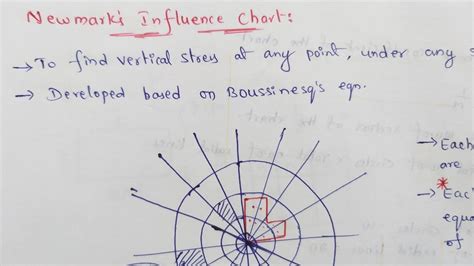 Newmark's Influence Chart:
→ To find vertical stress at any point, under any
→ Developed based on Boussinesq's eqn.
→ Each
are
→ Eac
equa
of